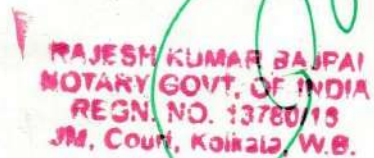 RAJESH KUMAR BAJPAI
NOTARY GOVT. OF INDIA
REGN. NO. 13780/18
JM, Court, Kolkata, W.B.